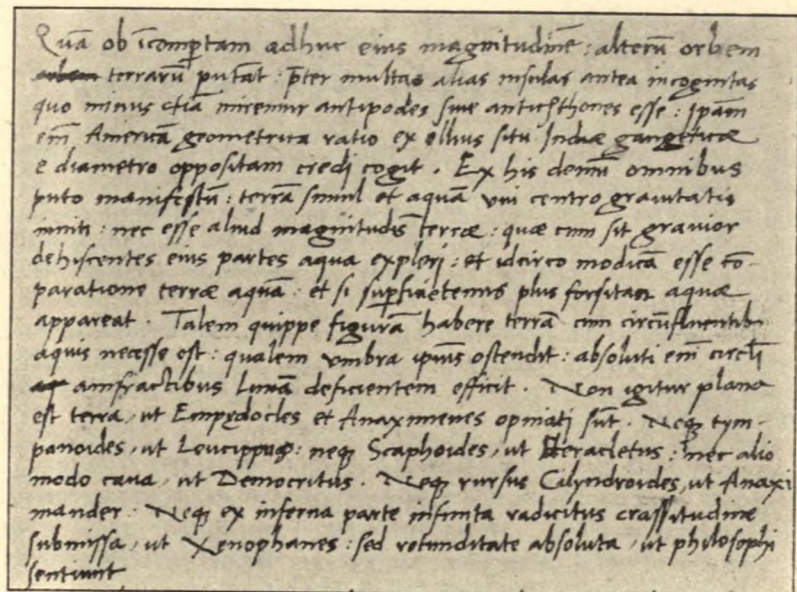 Quā ob īcomptam adhuc eius magnitudinē: alterū orbem
terrarū putāt: p̄ter multas alias insulas antea incognitas
quo minus etiā miremur antipodes siue antichthones esse: Ipam̄
em̄ Americā geometrica ratio ex illius situ Indiæ gangeticæ
e diametro oppositam credi cogit. Ex his demū omnibus
puto manifestū: terrā simul et aquā uni centro grauitatis
inniti: nec esse aliud magnitudis̄ terræ: quæ cum sit grauior
dehiscentes eius partes aqua expleri: et idcirco modicā esse cō-
paratione terræ aquā: et si supficietenus plus forsitan aquæ
appareat. Talem quippe figurā habere terrā cum circūfluentib
aquis necesse est: qualem vmbra ipius ostendit: absoluti em̄ circli
amfractibus Lunā deficientem efficit. Non igitur plana
est terra, ut Empędocles et Anaximenes opinati sūt. Neqꝫ tym-
panoides, ut Leucippus: neqꝫ Scaphoides, ut Heracletus: nec alio
modo caua, ut Democritus. Neqꝫ rursus Cilyndroides, ut Anaxi
mander. Neqꝫ ex inferna parte infinita radicitus crassitudine
submissa, ut Xenophanes: sed rotunditate absoluta, ut philosophi
sentiunt